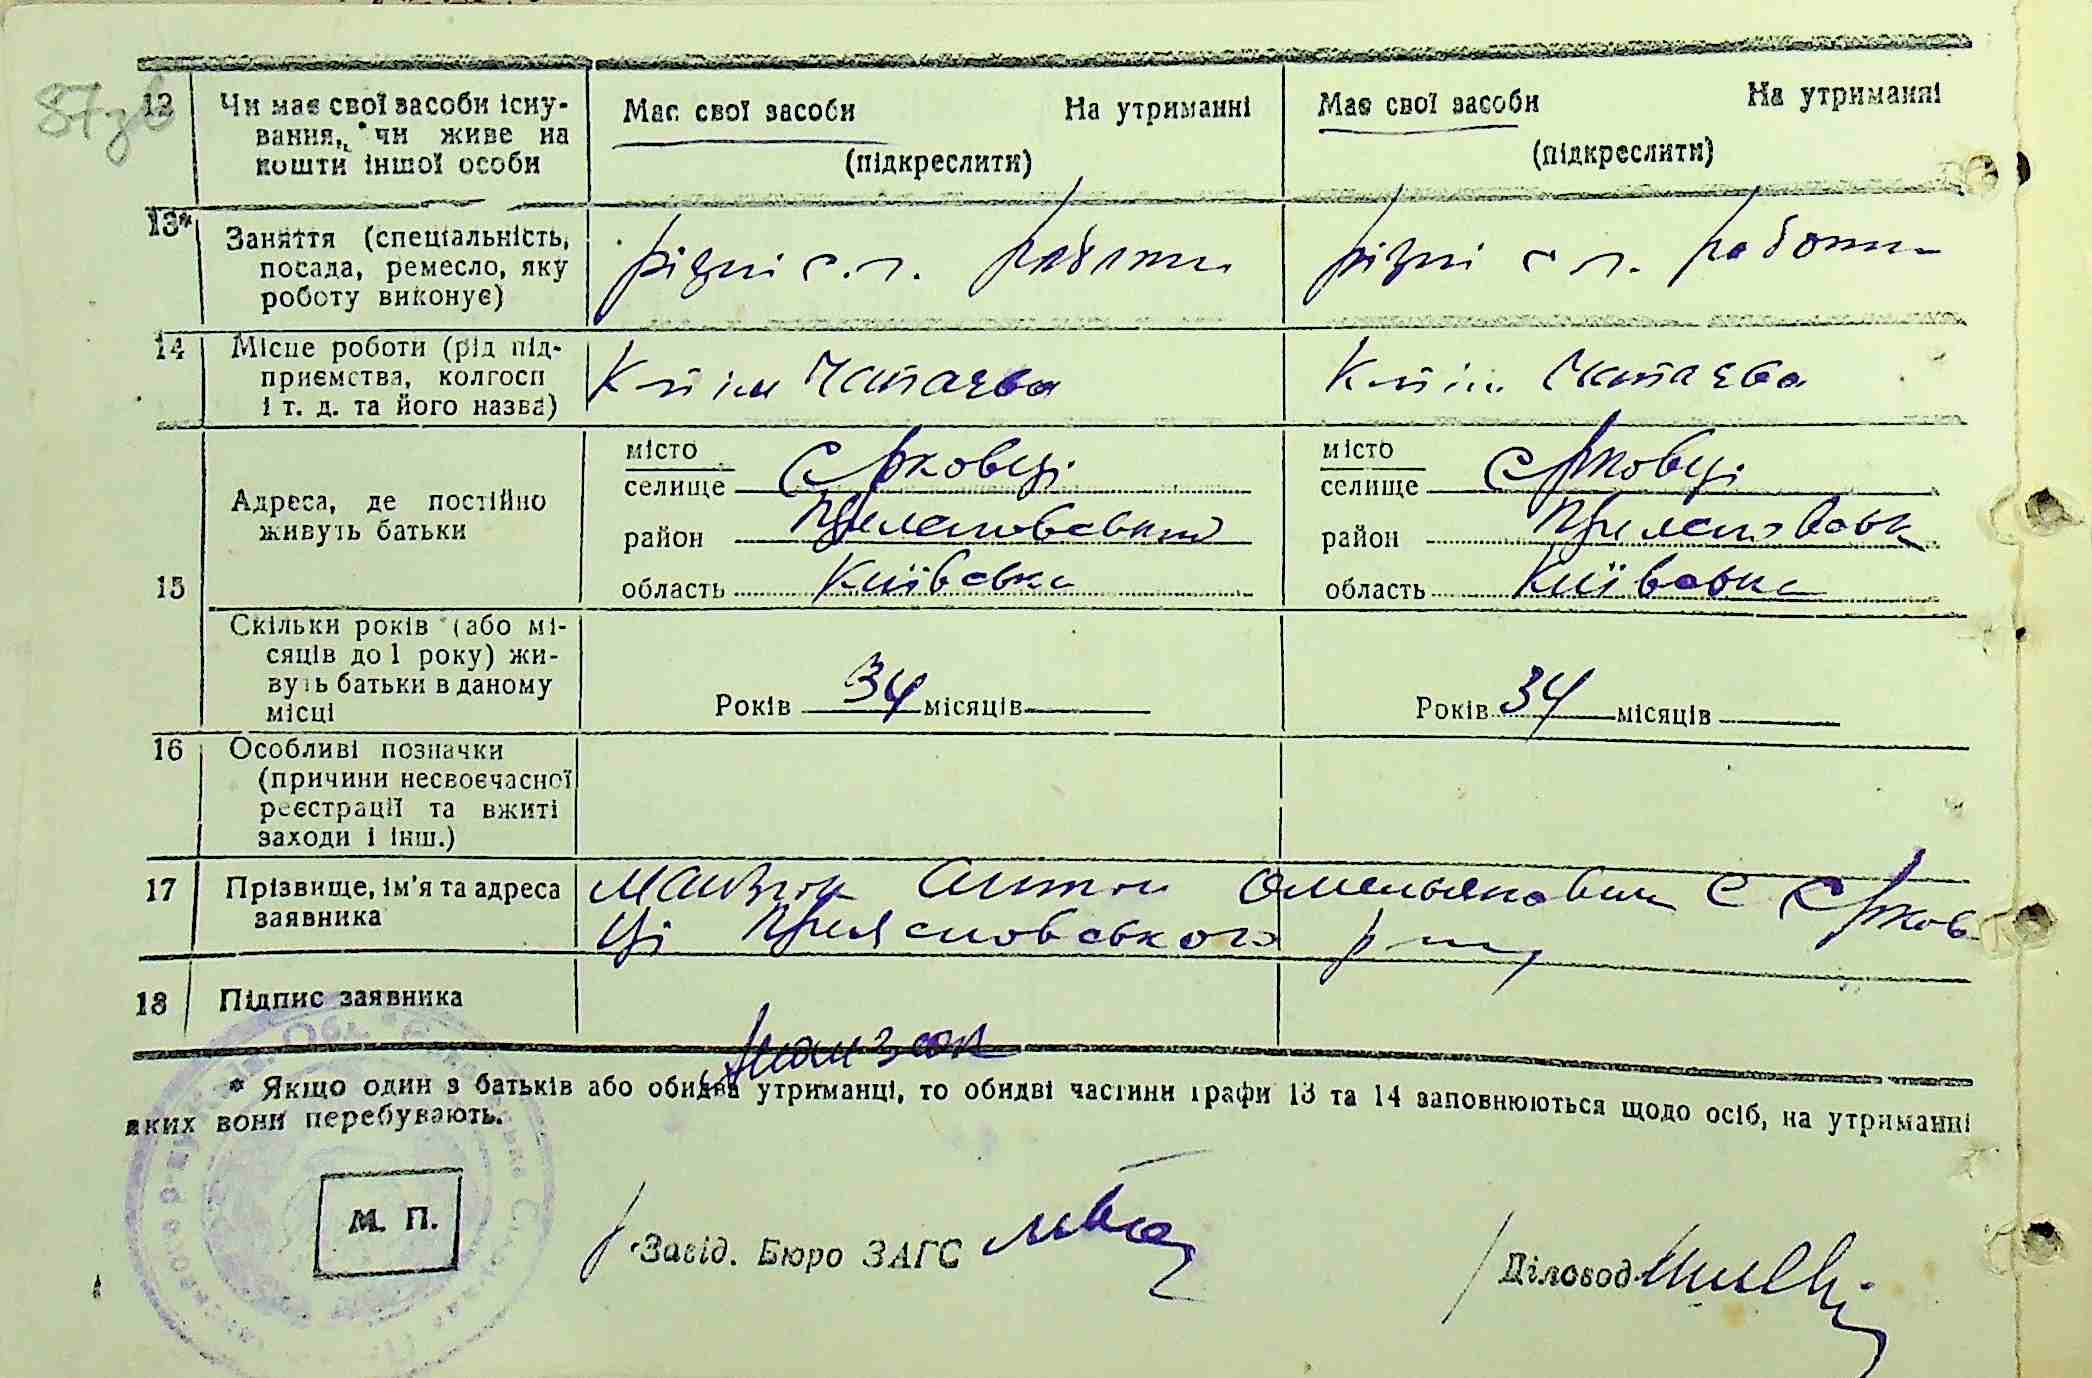 87зв
12 Чи має свої засоби існу-
вання, чи живе на
кошти іншої особи
Має свої засоби На утриманні
(підкреслити)
Має свої засоби На утриманні
(підкреслити)
13* Заняття (спеціальність,
посада, ремесло, яку
роботу виконує)
різні с. г. роботи
різні с г. роботи
14 Місце роботи (рід під-
приємства, колгосп
і т. д. та його назва)
К-п ім Чапаєва
К-п ім Чапаєва
15
Адреса, де постійно
живуть батьки
місто
селище Єрковці
район
область Київська
місто
селище Єрковці
район
область Київська
Скільки років (або мі-
сяців до 1 року) жи-
вуть батьки в даному
місці
Років 34 місяців
Років 34 місяців
16 Особливі позначки
(причини несвоєчасної
реєстрації та вжиті
заходи і інш.)
17 Прізвище, ім'я та адреса
заявника
Манзюк Антон Омельянович с Єрков
ці р-ну
18 Підпис заявника
Манзюк
* Якщо один з батьків або обидва утриманці, то обидві частини графи 13 та 14 заповнюються щодо осіб, на утриманні
яких вони перебувають.
М. П.
Завід. Бюро ЗАГС
Діловод